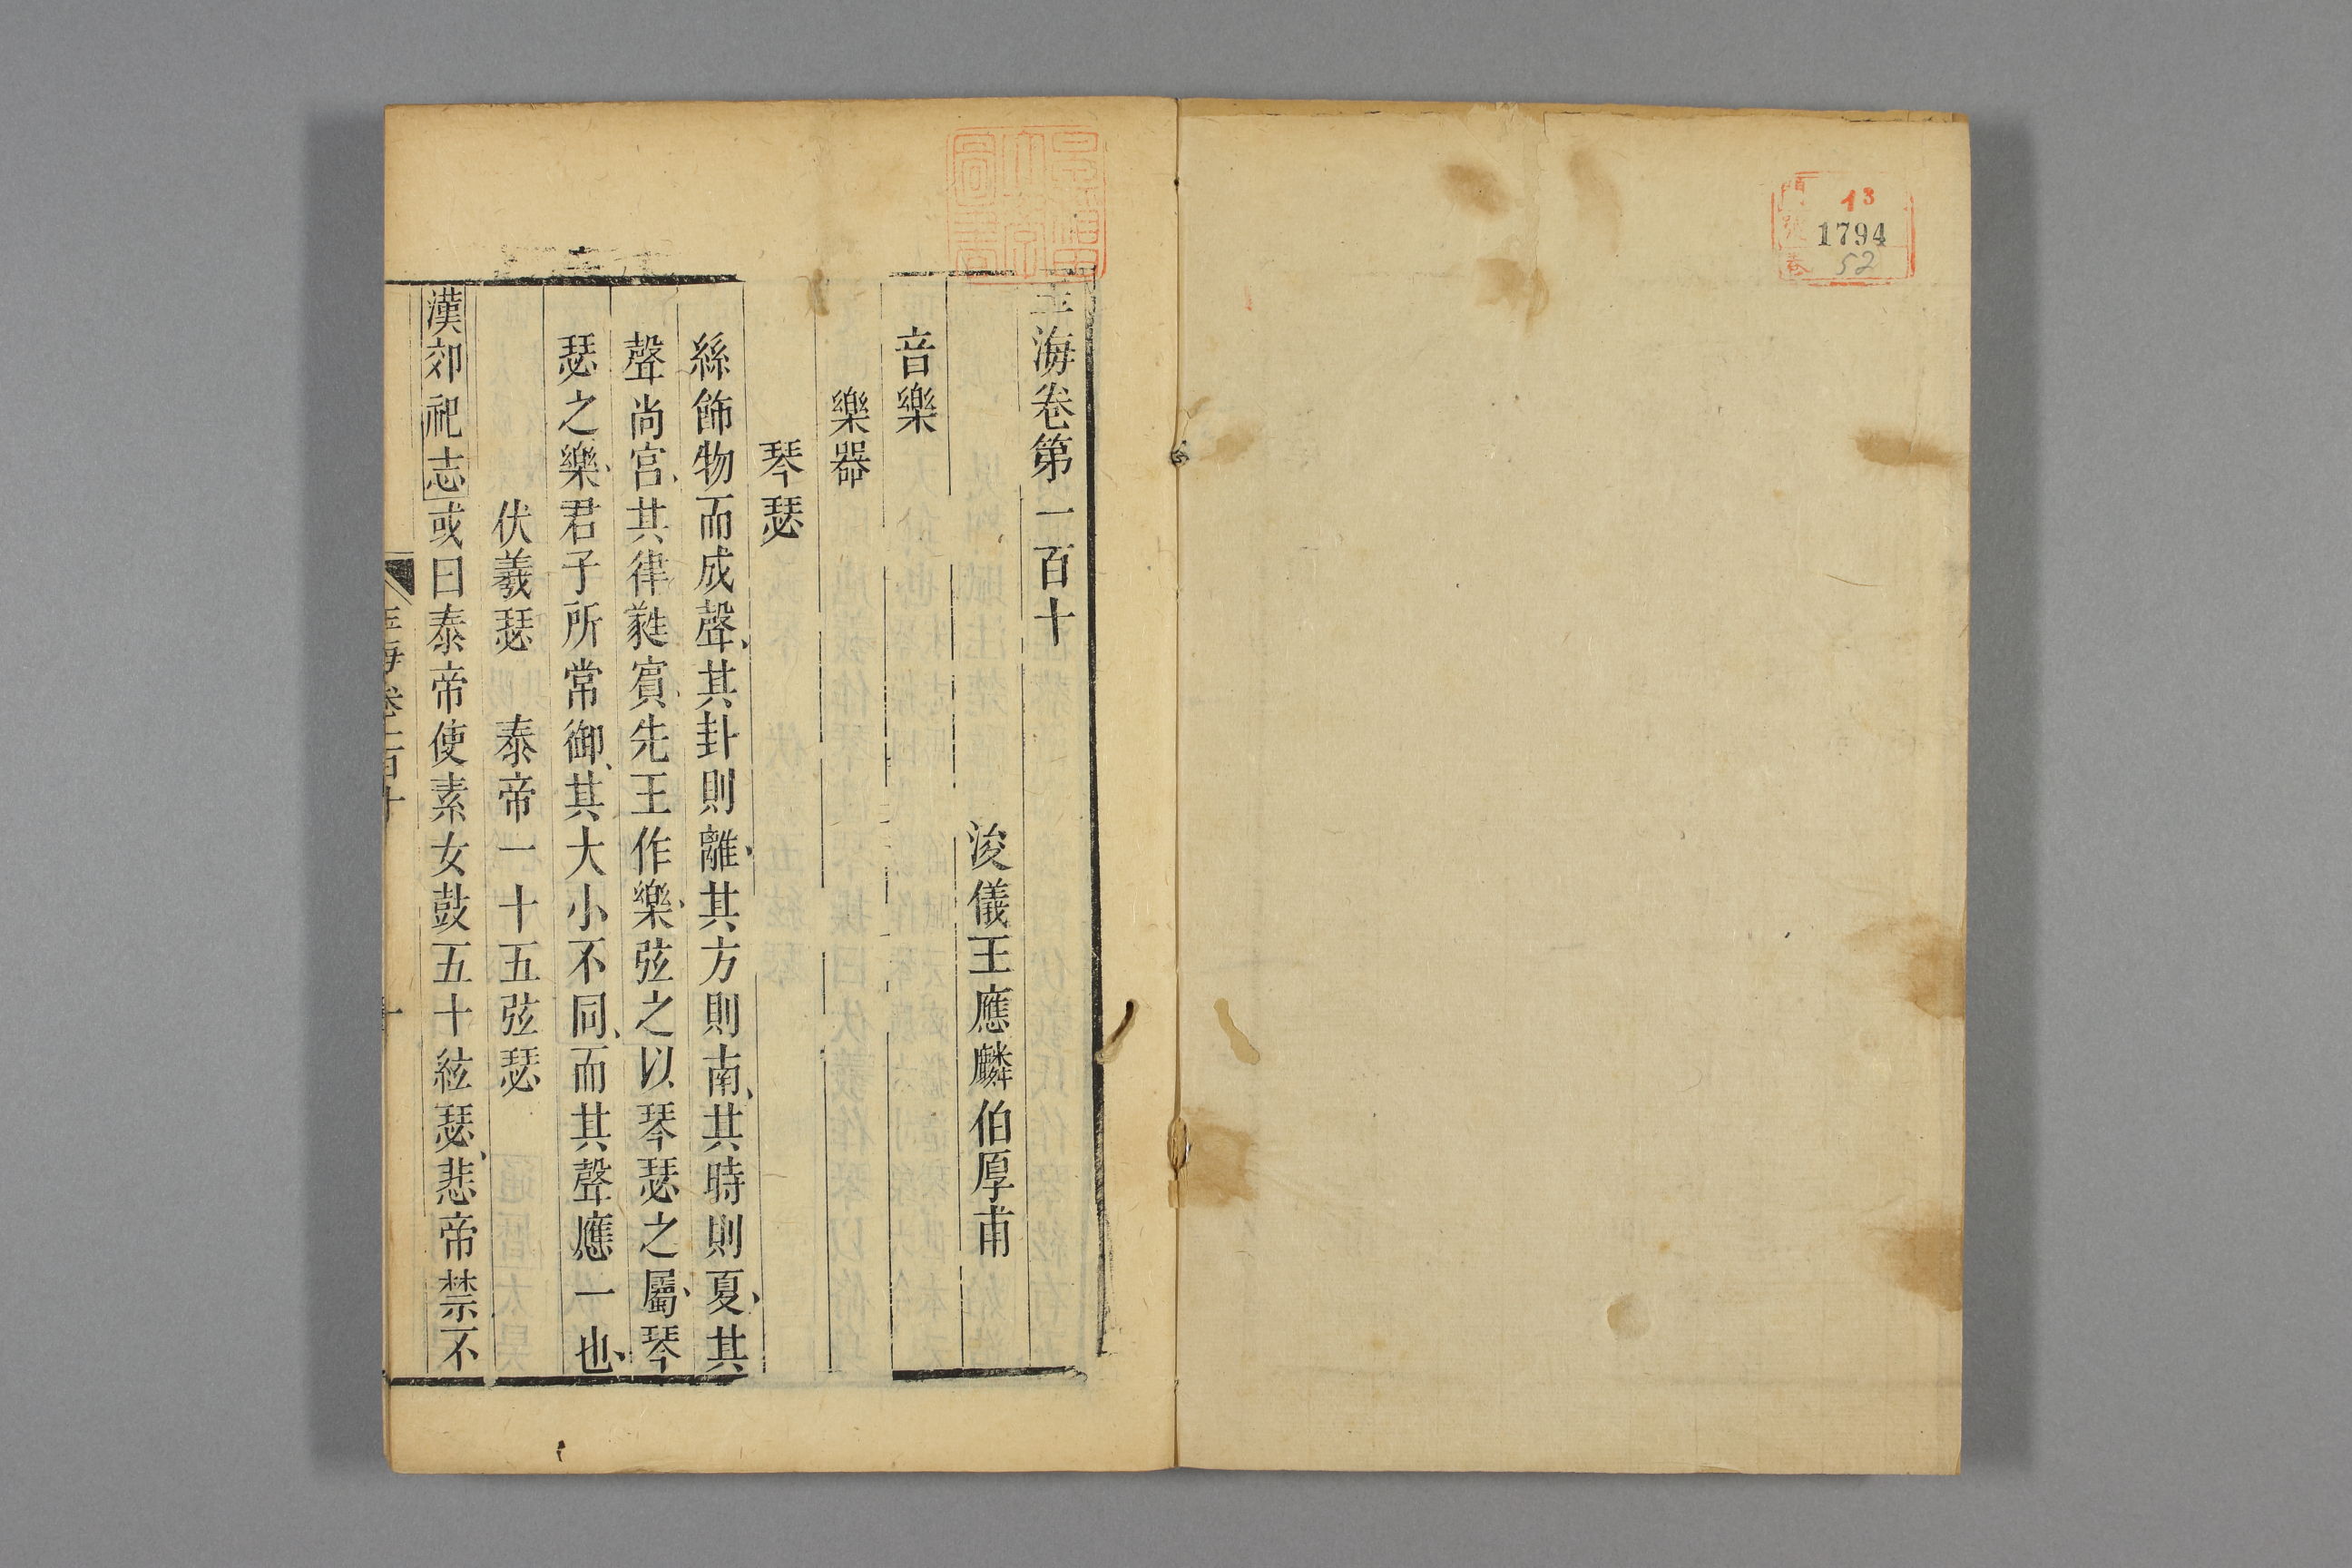 門 13
號 1794
卷 52
玉海卷第一百十
浚儀王應麟伯厚甫
音樂
樂器
琴瑟
絲飾物而成聲、其卦則離、其方則南、其時則夏、其
聲尚宮、其律蕤賓、先王作樂、弦之以琴瑟之屬、琴
瑟之樂、君子所常御、其大小不同、而其聲應一也、
伏羲瑟 泰帝一十五弦瑟
漢郊祀志或曰泰帝使素女鼓五十絃瑟、悲帝禁不
玉海卷一百十
一